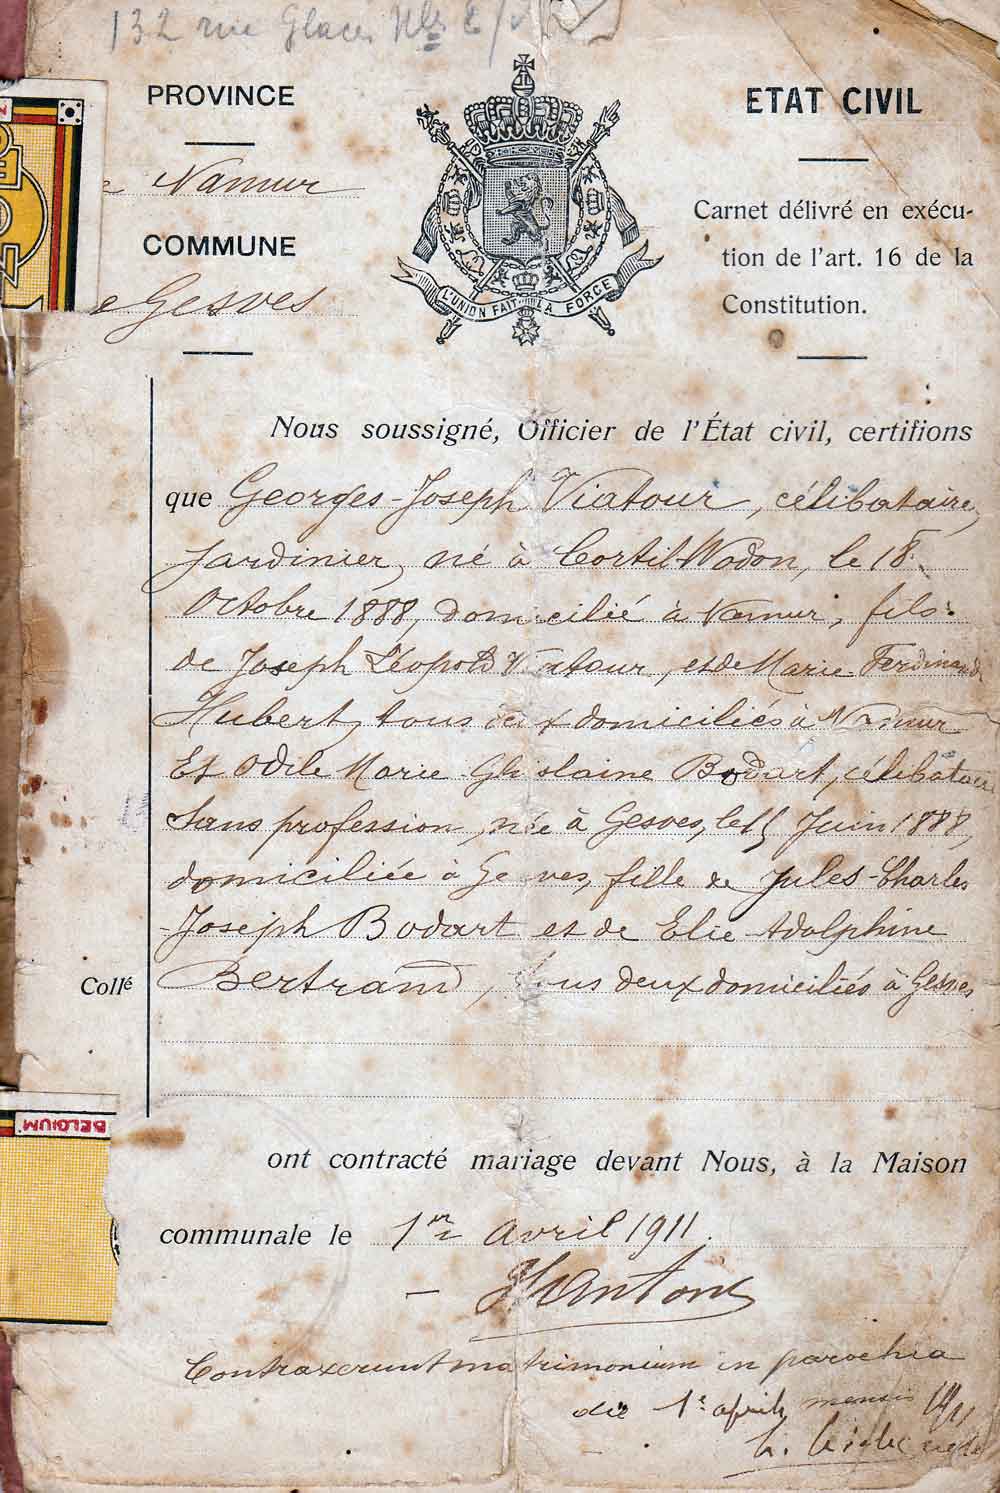 132 rue Glaces
PROVINCE
Namur
COMMUNE
Gesves
L'UNION FAIT LA FORCE
ETAT CIVIL
Carnet délivré en exécu-
tion de l'art. 16 de la
Constitution.
Nous soussigné, Officier de l'État civil, certifions
que Georges-Joseph Viatour, célibataire,
Jardinier, né à Cortil-Wodon, le 18
Octobre 1888, domicilié à Namur, fils
de Joseph Léopold Viatour, et de Marie Ferdinande
Hubert, tous deux domiciliés à Namur
Et Odile Marie Ghislaine Bodart, célibataire
Sans profession, née à Gesves, le 15 Juin 1888,
domiciliée à Gesves, fille de Jules-Charles
Joseph Bodart et de Elie Adolphine
Bertrand, tous deux domiciliés à Gesves
Collé
BELGIUM
ont contracté mariage devant Nous, à la Maison
communale le 1er avril 1911.
Contraxerunt matrimonium in parochia
die 1e aprilis mensis 1911